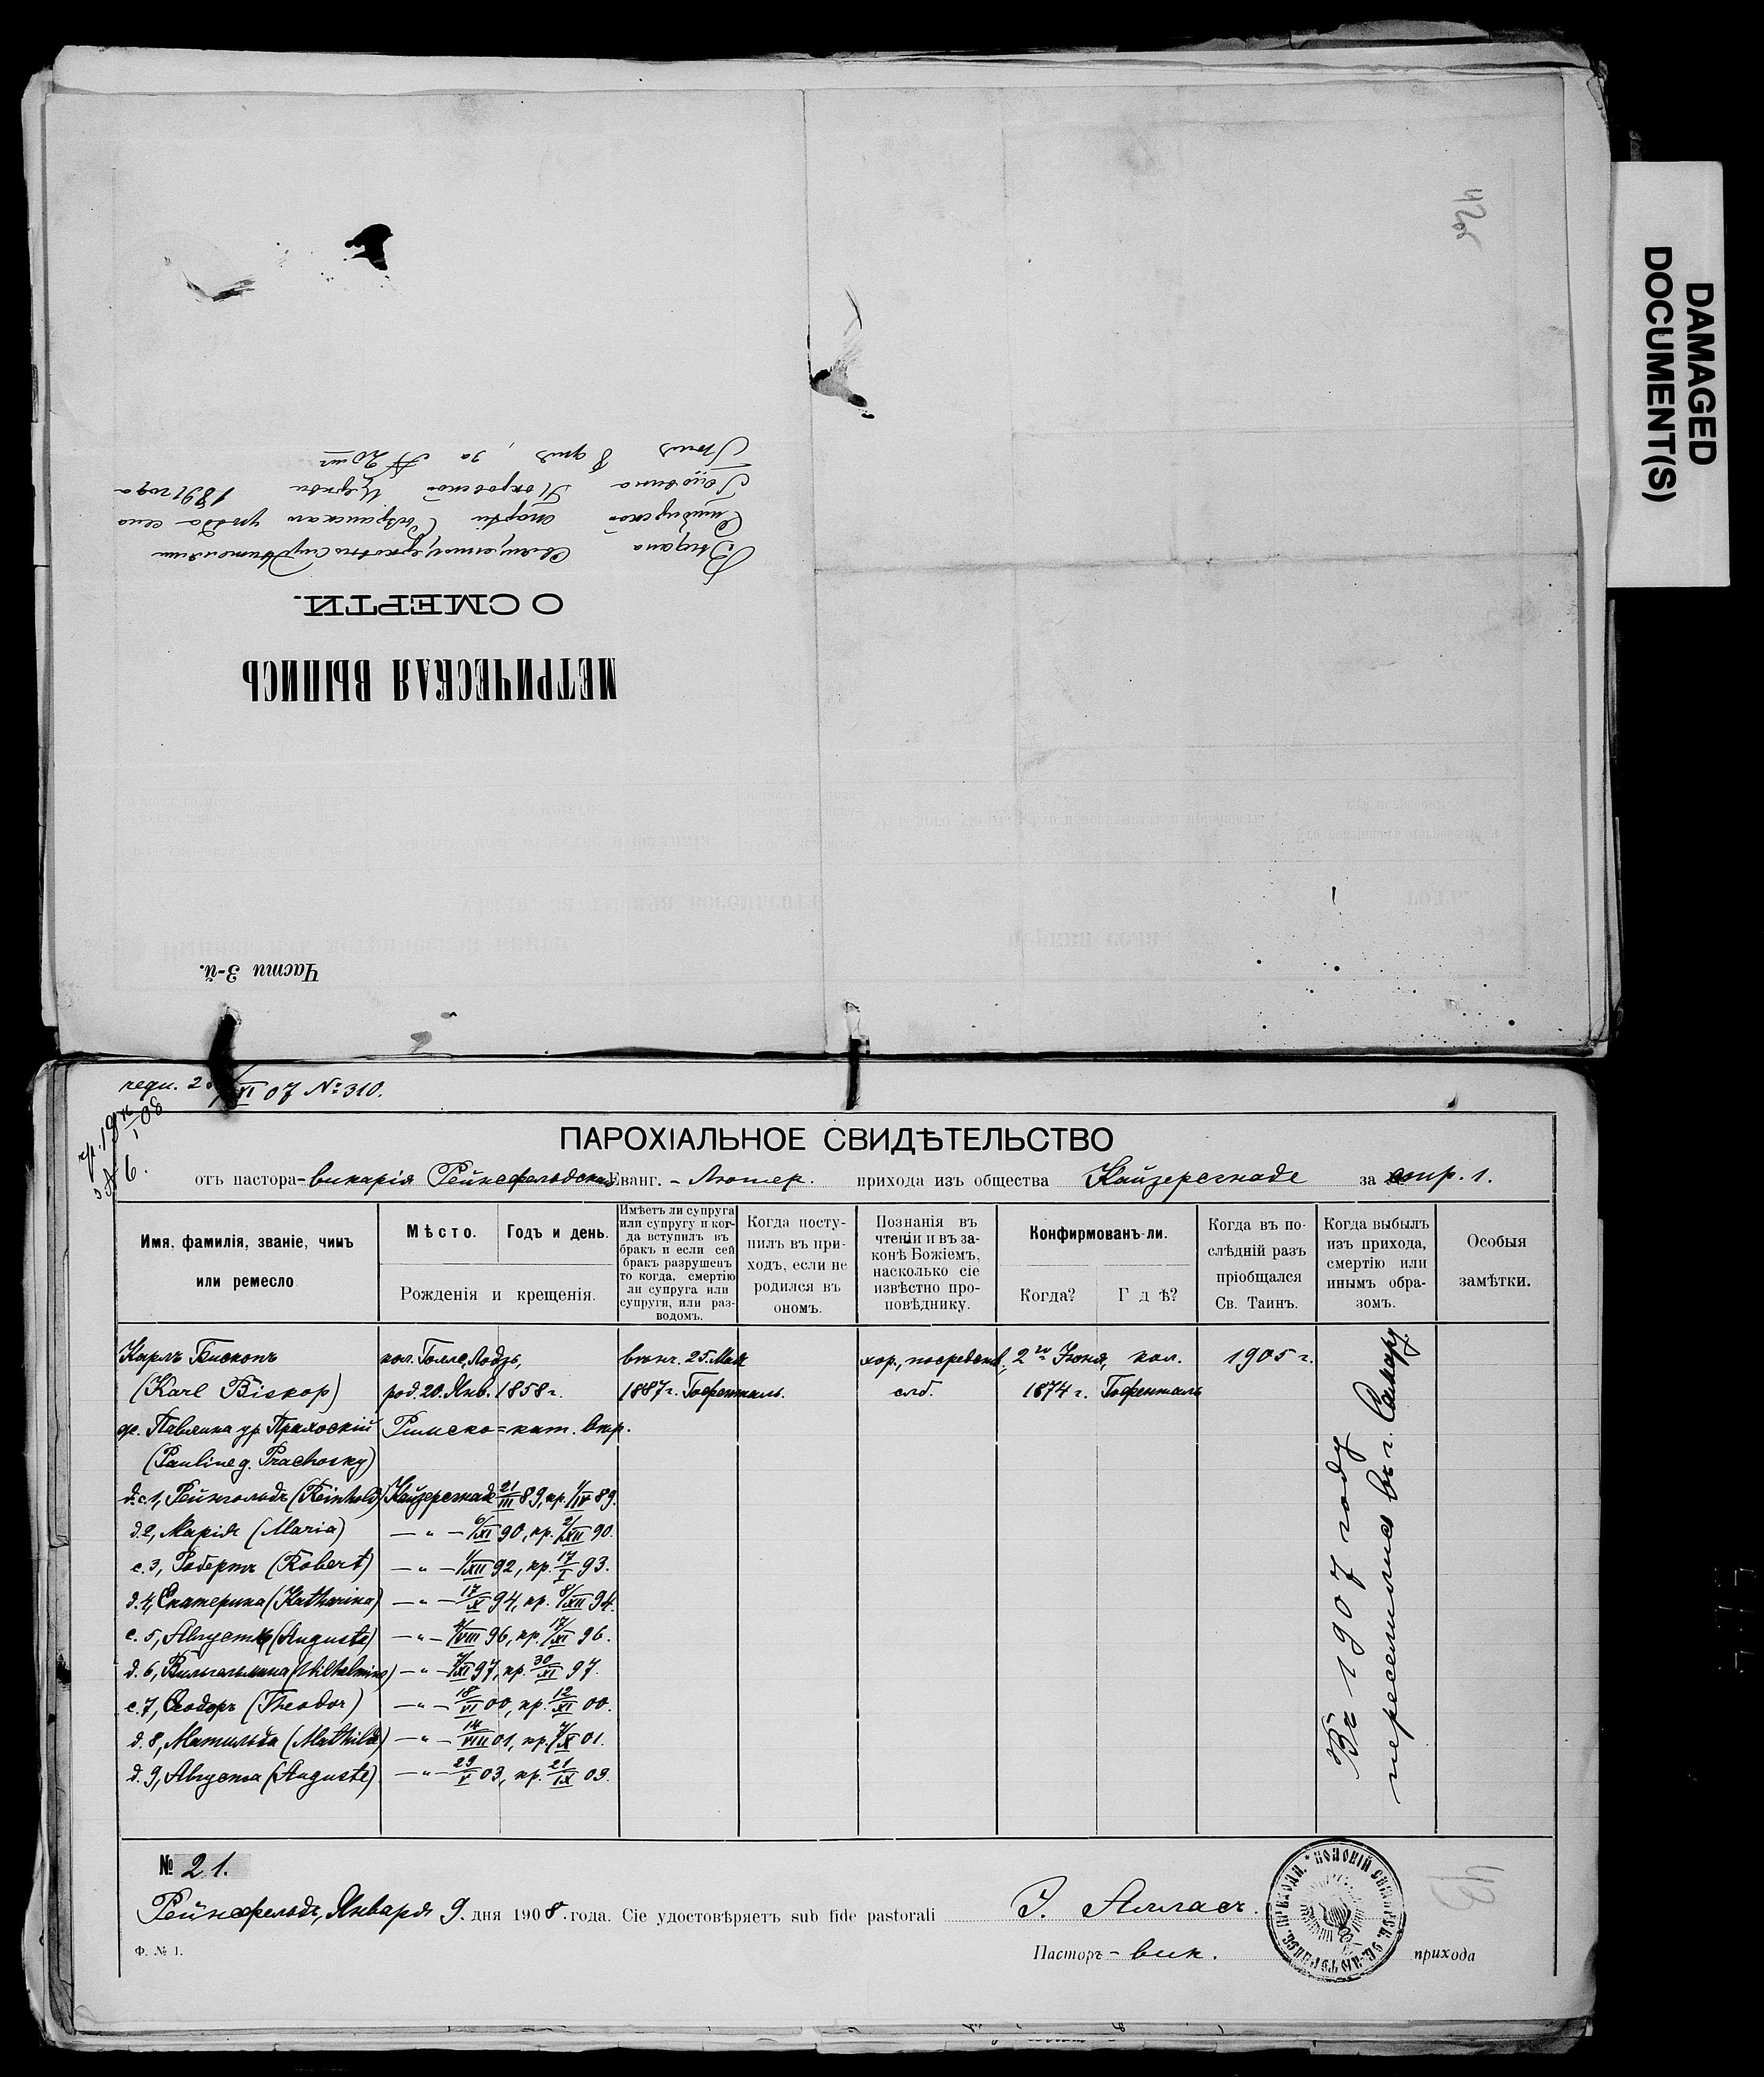 DAMAGED
DOCUMENT(S)
42об
Части 3-й.
МЕТРИЧЕСКАЯ ВЫПИСЬ
О СМЕРТИ.
Выдана Священноцерковнослужителями
Симбирской епархіи Сызранскаго уѣзда села
Покровской Церкви 1891 года
Іюня 8 дня, за № 20мъ
XI 07 № 310.
№ 6.
ПАРОХІАЛЬНОЕ СВИДѢТЕЛЬСТВО
отъ пастора-викарія Рейнсфельдскаго Еванг. - Лютер. прихода изъ общества Кайзерсгнаде за стр. 1.
Имя, фамилія, званіе, чинъ или ремесло
Мѣсто.
Годъ и день.
Рожденія и крещенія.
Имѣетъ ли супруга или супругу и когда вступилъ въ бракъ и если сей бракъ разрушенъ то когда, смертію ли супруга или супруги, или разводомъ.
Когда поступилъ въ приходъ, если не родился въ ономъ.
Познанія въ чтеніи и въ законѣ Божіемъ, насколько сіе извѣстно проповѣднику.
Конфирмованъ-ли.
Когда?
Гдѣ?
Когда въ послѣдній разъ пріобщался Св. Таинъ.
Когда выбылъ изъ прихода, смертію или инымъ образомъ.
Особыя замѣтки.
Карлъ Бископъ кол. Лодзь, вѣнч. 25. Мая хор., посредств. 2го Іюня, кол. 1905 г.
(Karl Biskop) род. 20. Янв. 1858 г. 1887 г. Гофенталь. слб. 1874 г. Гофенталь
ж. Павлина ур. Прахоскій Римско=кат. вѣр.
(Pauline g. Prachosky)
д: с. 1, Рейнгольдъ (Reinhold) Кайзерсгнаде 21/III 89, кр. 1/IV 89.
д. 2, Марія (Maria) — " — 6/XI 90, кр. 2/XII 90.
с. 3, Робертъ (Robert) — " — 1/XII 92, кр. 17/I 93.
д. 4, Екатерина (Katharina) — " — 17/X 94, кр. 8/XII 94.
с. 5, Августъ (Auguste) — " — /VIII 96, кр. 17/XI 96.
д. 6, Вильгельмина (Wilhelmine) — " — 7/XI 97, кр. 30/XI 97.
с. 7, Ѳеодоръ (Theodor) — " — 18/VI 00, кр. 12/XI 00.
д. 8, Матильда (Mathilde) — " — 14/VIII 01, кр. 7/X 01.
д. 9, Августа (Auguste) — " — 29/V 03, кр. 21/IX 03.
Въ 1907 году
переселились въ г. Самару
№ 21.
Рейнсфельдъ, Января 9. дня 1908. года. Сіе удостовѣряетъ sub fide pastorali І. Алласъ.
Ф. № 1.
Пасторъ - вик. прихода
43